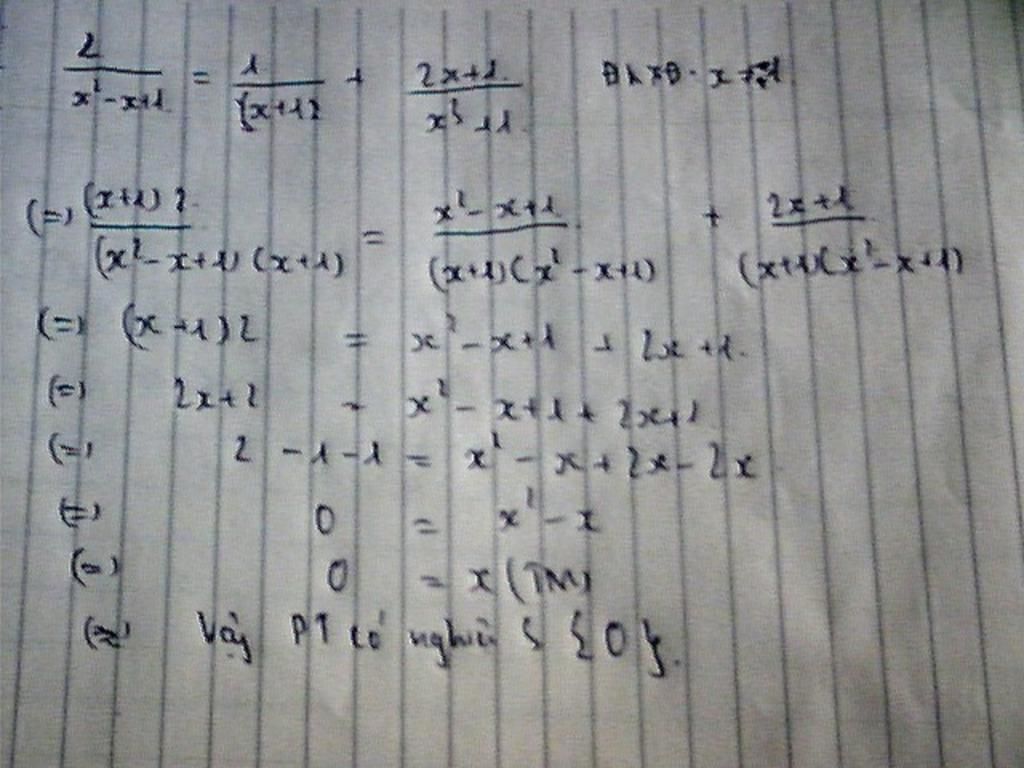 2/(x² - x + 1) = 1/(x + 1) + (2x + 1)/(x³ + 1) ĐKXĐ: x ≠ -1
(=) (x+1)2/((x² - x + 1)(x+1)) = (x² - x + 1)/((x+1)(x² - x + 1)) + (2x + 1)/((x+1)(x² - x + 1))
(=) (x + 1)2 = x² - x + 1 + 2x + 1.
(=) 2x + 2 = x² - x + 1 + 2x + 1
(=) 2 - 1 - 1 = x² - x + 2x - 2x
(=) 0 = x² - x
(=) 0 = x (TM)
(=) Vậy PT có nghiệm S {0}.